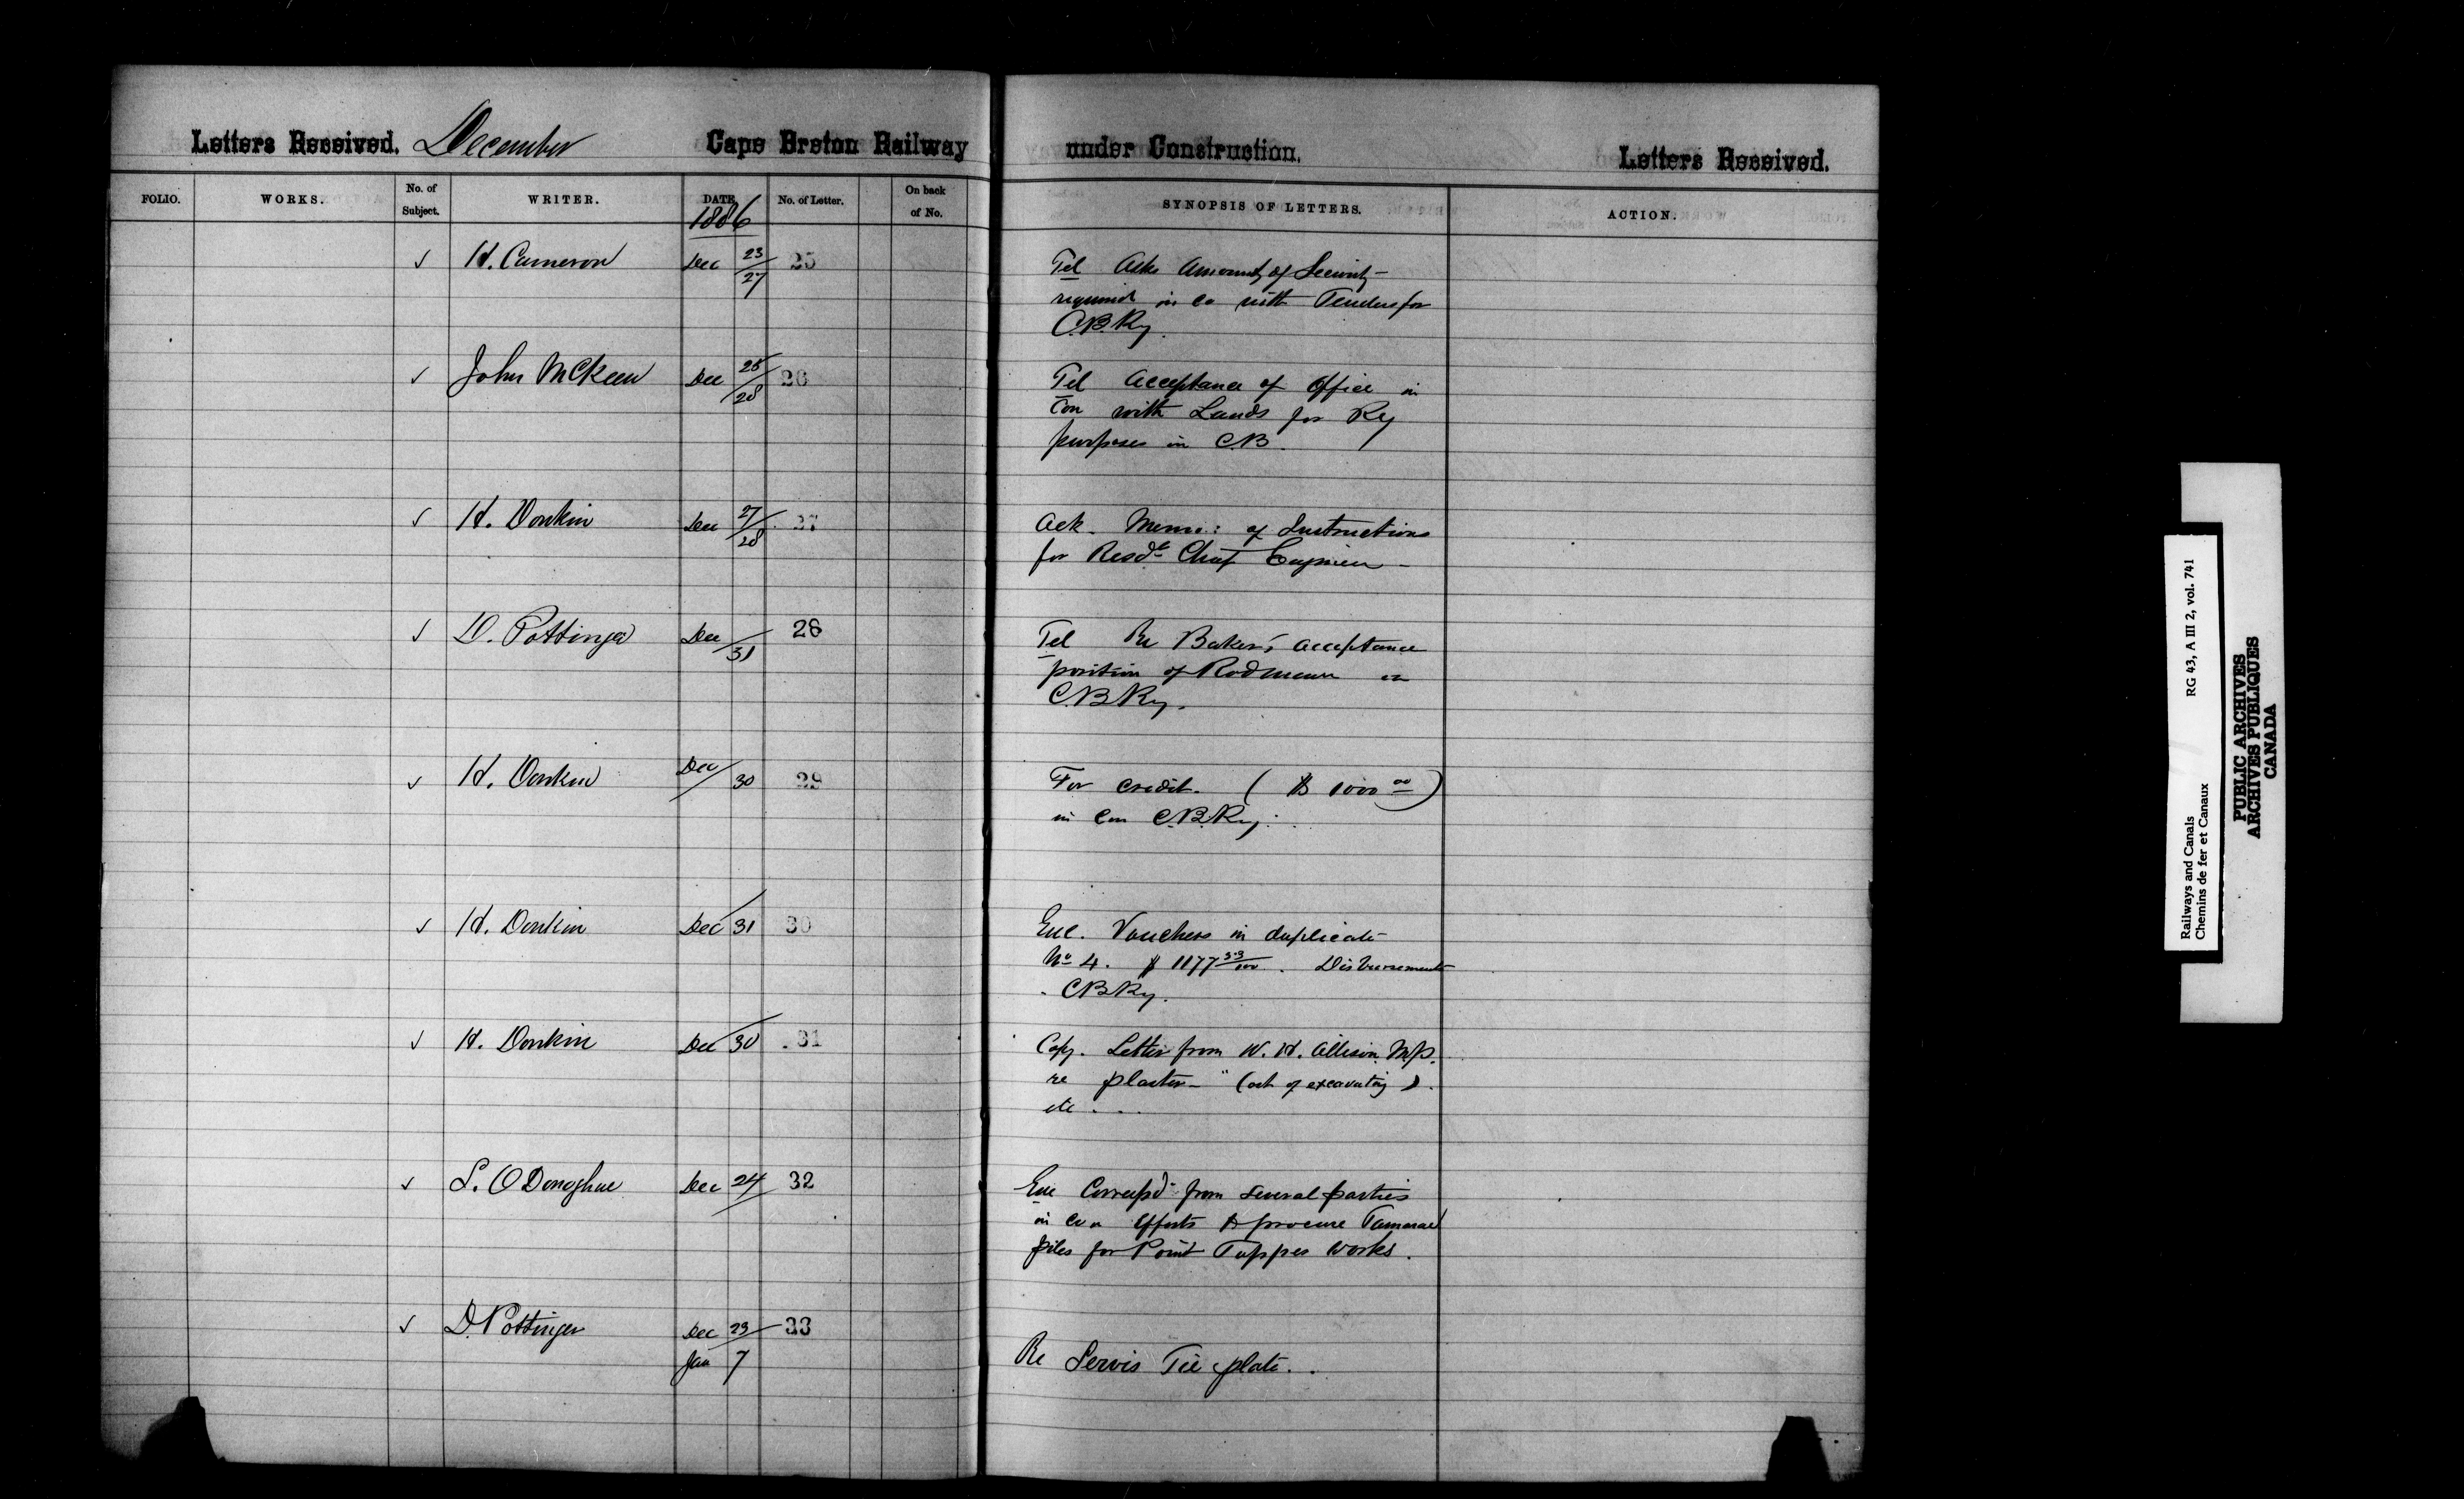 Letters Received. December Cape Breton Railway under Construction. Letters Received.
FOLIO. WORKS. No. of Subject. WRITER. DATE. No. of Letter. On back of No. SYNOPSIS OF LETTERS. ACTION.
1886
✓ H. Cameron Dec 23/27 25 Tel Asks Amount of Security
required in co with Tenders for
C.B.Ry.
✓ John McKeen Dec 28/28 26 Tel Acceptance of Office in
Con with Lands for Ry
purposes in C.B.
✓ H. Donkin Dec 27/28 27 Ack. Memo: of Instructions
for Resdt Chief Engineer –
✓ D. Pottinger Dec /31 28 Tel Re Baker's acceptance
position of Rodman on
C.B.Ry.
✓ H. Donkin Dec/30 29 For credit. ( $ 1000 00 )
in Con C.B.Ry.
✓ H. Donkin Dec 31 30 Enc. Vouchers in duplicate
No 4. $ 1177 53/100. Disbursements
C.B.Ry.
✓ H. Donkin Dec 30 31 Copy. Letter from W. H. Allison M.P.
re plaster – " (out of excavating).
etc . . .
✓ S. O'Donoghue Dec 24 32 Enc Correspd from several parties
in con Efforts to procure Tamarac
piles for Point Tupper works.
✓ D. Pottinger Dec 23 33
Jan 7 Re Servis Tie plate. .
Railways and Canals RG 43, A III 2, vol. 741
Chemins de fer et Canaux
PUBLIC ARCHIVES
ARCHIVES PUBLIQUES
CANADA